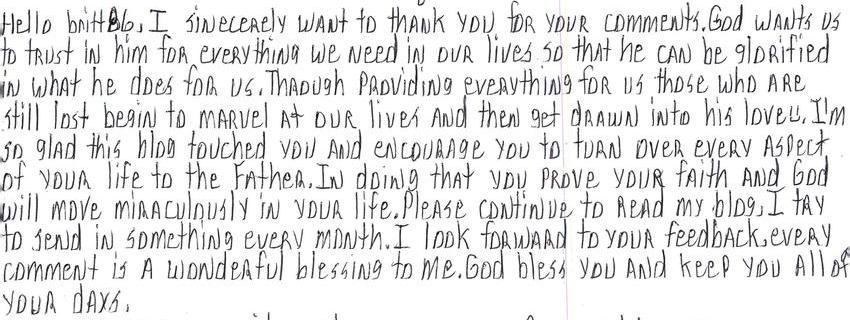 Hello britt86, I sinecerely want to thank you for your comments. God wants us
to trust in him for everything we need in our lives so that he can be glorified
in what he does for us. Thaough providing everything for us those who are
still lost begin to marvel at our lives and then get drawn into his love. I'm
so glad this blog touched you and encourage you to turn over every aspect
of your life to the Father. In doing that you prove your faith and God
will move miraculously in your life. Please continue to read my blog, I try
to send in something every month. I look forward to your feedback, every
comment is a wonderful blessing to me. God bless you and keep you all of
your days.